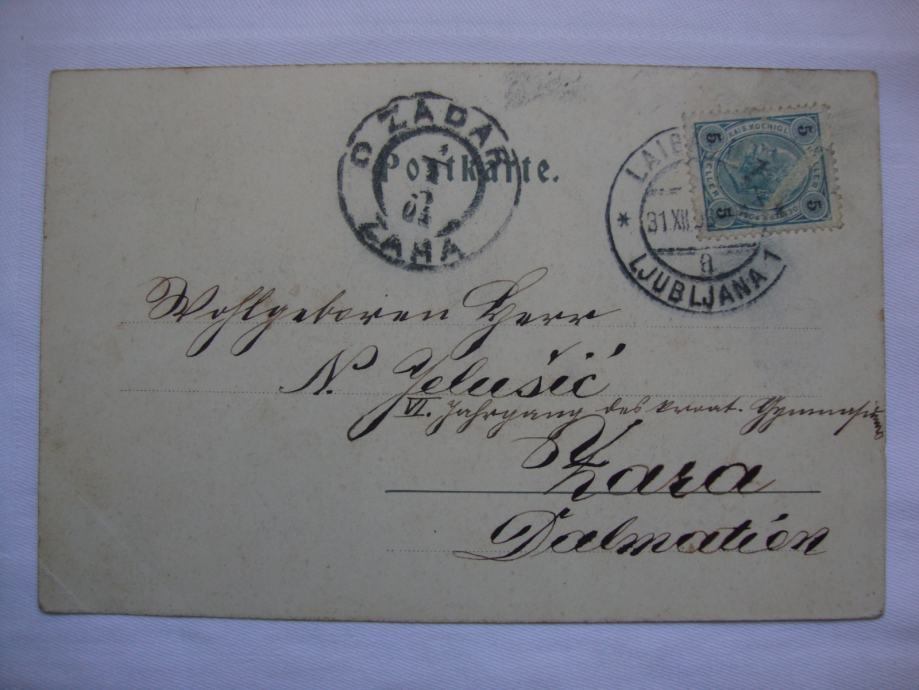 ZADAR
Postkarte.
ZARA
LAIB
31 XII
a
LJUBLJANA 1
5 5
5 5
Wohlgeboren Herr
N. Jelušić
VI. Jahrgang des kroat. Gymnasiums
Zara
Dalmatien